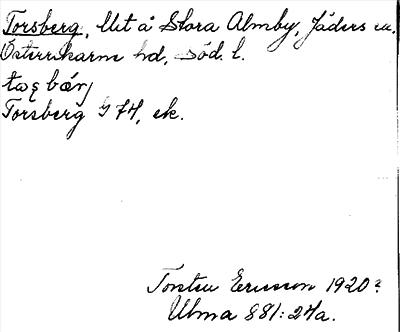 Torsberg, lht å Stora Almby, Jäders sn.
Österrekarne hd, Söd. l.
Torsberg 74, ek.
Torsten Ericsson 1920?
Ulma 881:24a.